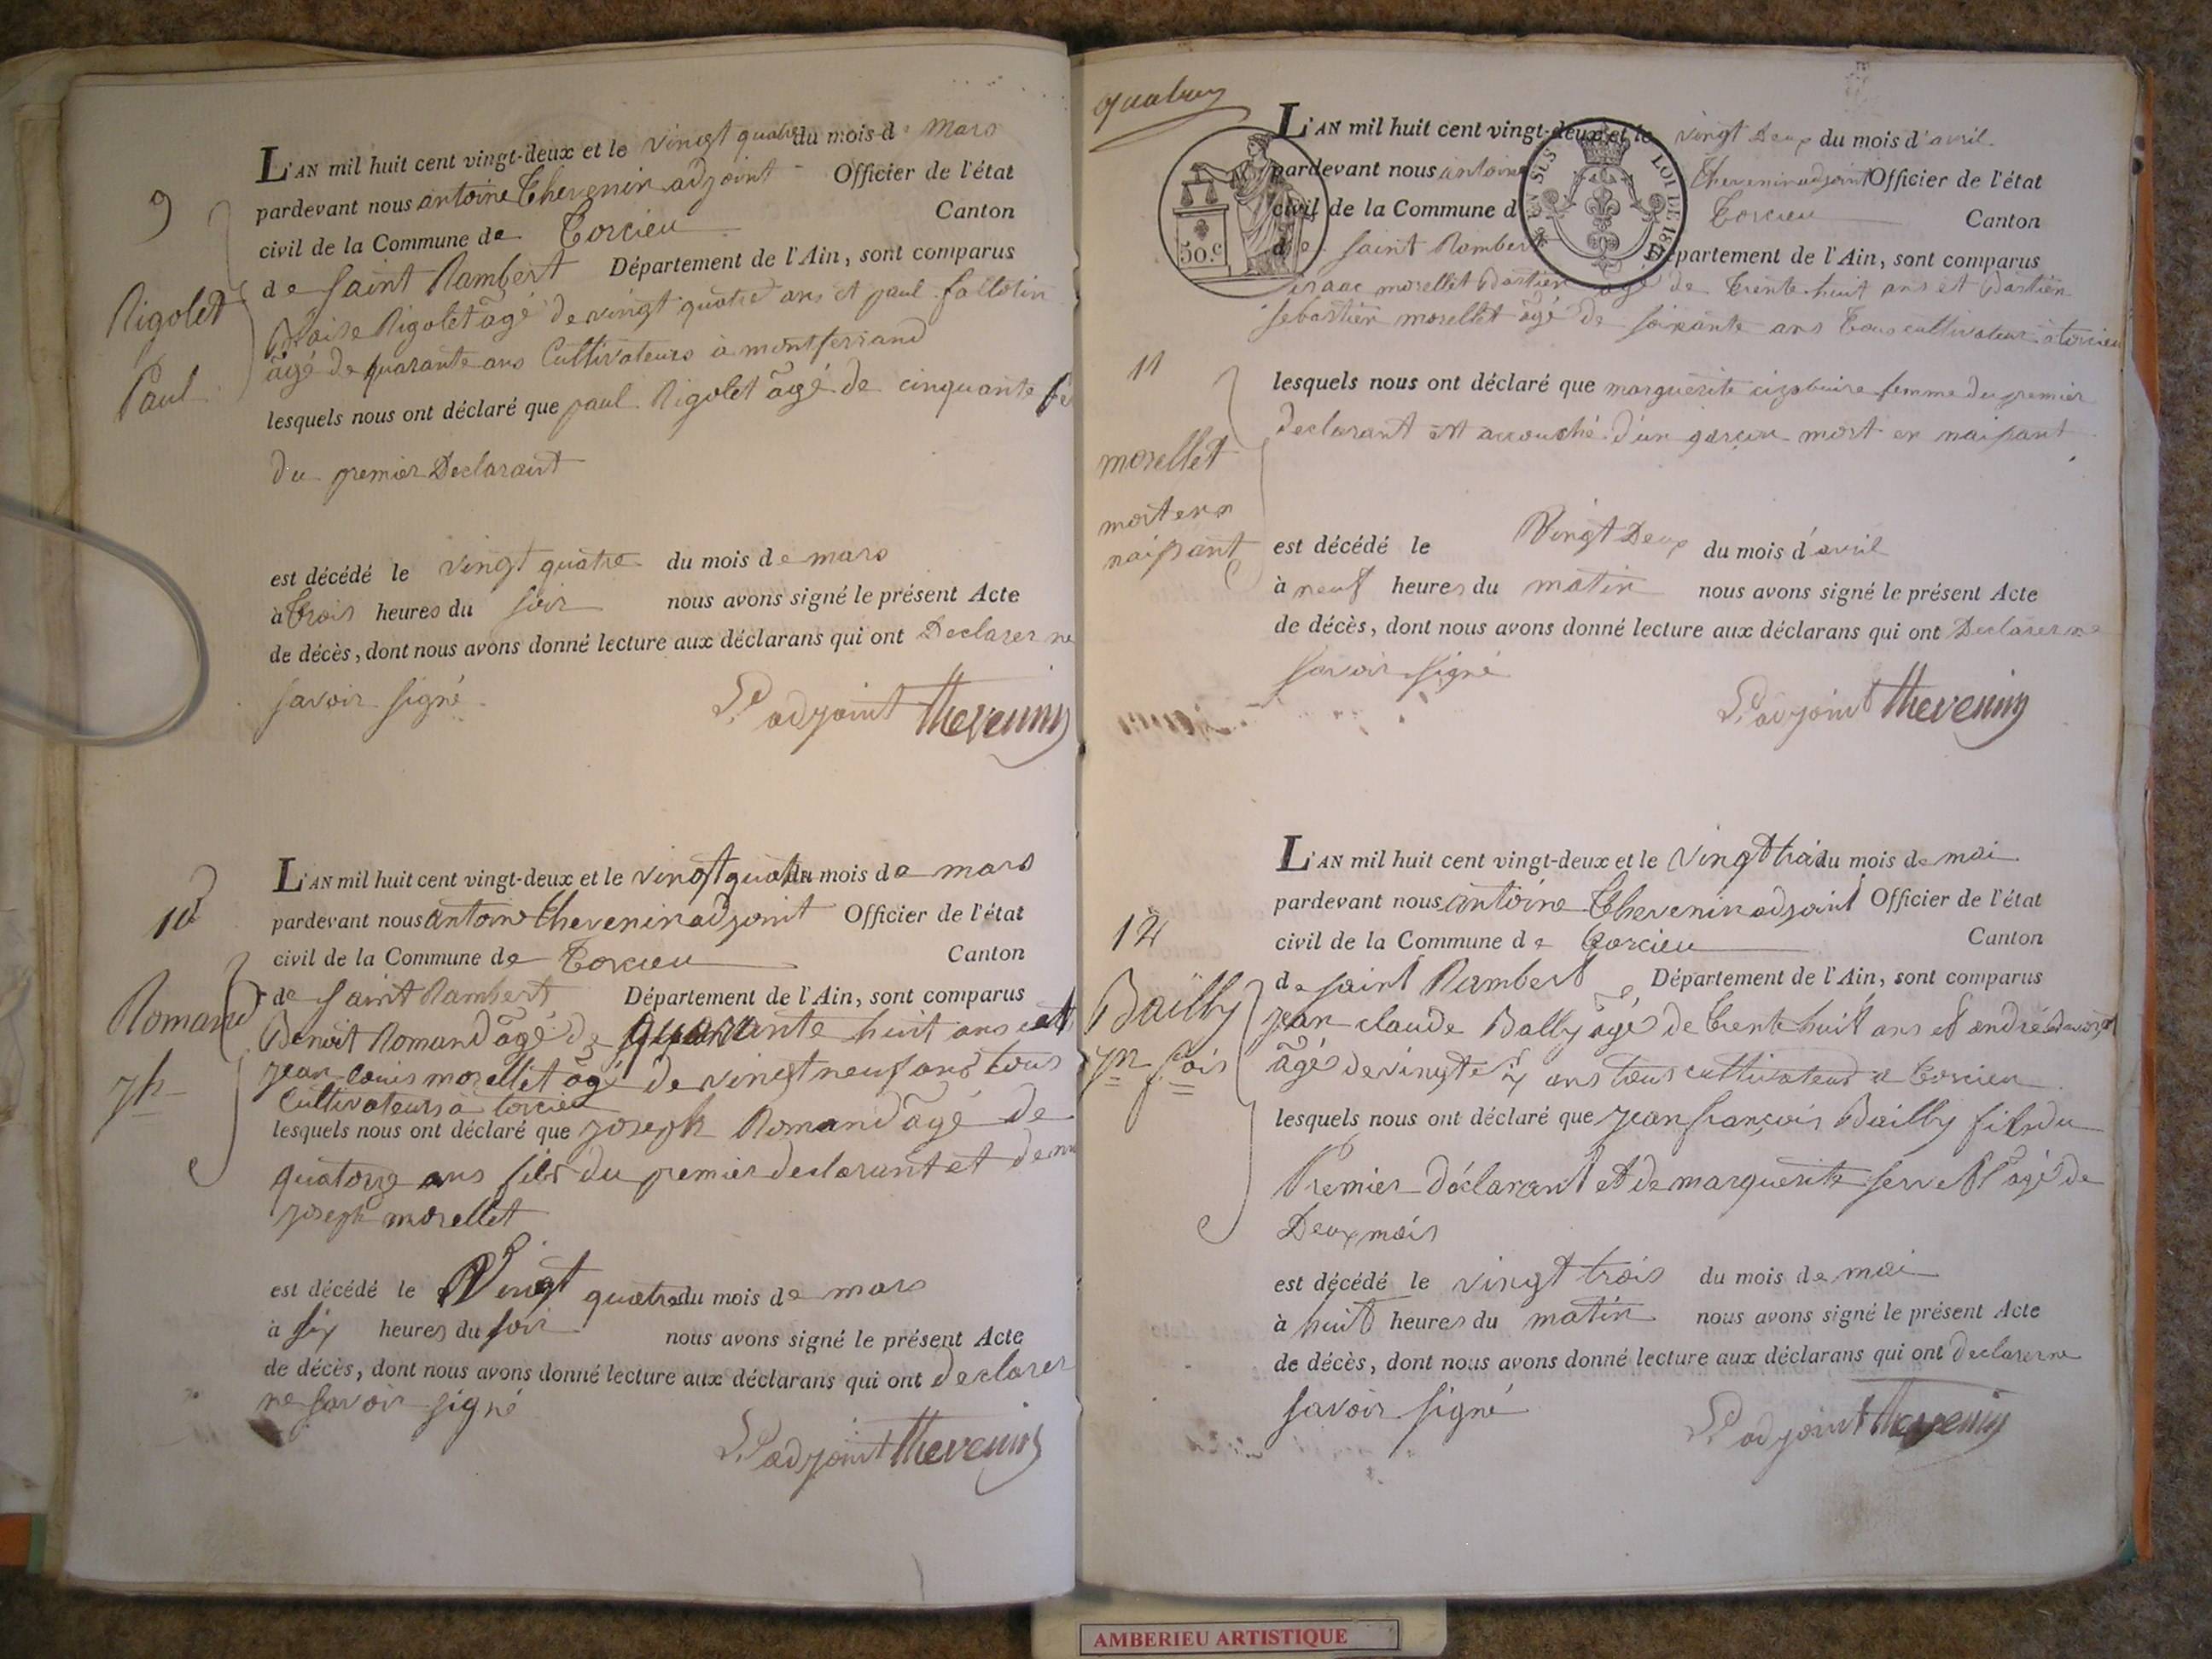 9
Rigolet
Paul
L'AN mil huit cent vingt-deux et le vingt quatre du mois d mars
pardevant nous antoine Thevenin adjoint Officier de l'état
civil de la Commune de Torcieu Canton
de saint Rambert Département de l'Ain, sont comparus
Rigolet agé de vingt quatre ans et paul fallotin
âgé de quarante ans Cultivateurs à montferrand
lesquels nous ont déclaré que paul Rigolet âgé de cinquante
du premier Declarant
est décédé le vingt quatre du mois de mars
à trois heures du soir nous avons signé le présent Acte
de décès, dont nous avons donné lecture aux déclarans qui ont Declarer ne
savoir signé
L'adjoint thevenin
10
Romand
jh
L'AN mil huit cent vingt-deux et le vingt quatre du mois de mars
pardevant nous antoine thevenin adjoint Officier de l'état
civil de la Commune de Torcieu Canton
de saint Rambert Département de l'Ain, sont comparus
Benoit Romand âgé de quarante huit ans et
jean louis morellet âgé de vingt neuf ans tous
Cultivateurs à torcieu
lesquels nous ont déclaré que joseph Romand âgé de
quatorze ans fils du premier declarant et de
joseph morellet
est décédé le Vingt quatre du mois de mars
à six heures du soir nous avons signé le présent Acte
de décès, dont nous avons donné lecture aux déclarans qui ont declarer
ne savoir signé
L'adjoint thevenin
50.c
SUS
LOI DE 18
11
morellet
mort en
naissant
L'AN mil huit cent vingt-deux et le vingt Deux du mois d'avril
pardevant nous antoine Thevenin adjoint Officier de l'état
civil de la Commune d Torcieu Canton
de saint Rambert Département de l'Ain, sont comparus
isaac morellet Bastien agé de trente huit ans et Bastien
sebastien morellet âgé de soixante ans tous cultivateur à torcieu
lesquels nous ont déclaré que marguerite femme du premier
declarant est accouché d'un garçon mort en naissant
est décédé le Vingt Deux du mois d'avril
à neuf heures du matin nous avons signé le présent Acte
de décès, dont nous avons donné lecture aux déclarans qui ont Declarer ne
savoir signé
L'adjoint thevenin
12
Bailly
jn fois
L'AN mil huit cent vingt-deux et le vingt trois du mois de mai
pardevant nous antoine Thevenin adjoint Officier de l'état
civil de la Commune de Torcieu Canton
de saint Rambert Département de l'Ain, sont comparus
jean claude Bailly âgé de trente huit ans et andré
âgé de vingt six ans tous cultivateurs a torcieu
lesquels nous ont déclaré que jean françois Bailly fils du
Premier déclarant et de marguerite âgé de
Deux mois
est décédé le vingt trois du mois de mai
à huit heures du matin nous avons signé le présent Acte
de décès, dont nous avons donné lecture aux déclarans qui ont declarer ne
savoir signé
L'adjoint thevenin
AMBERIEU ARTISTIQUE